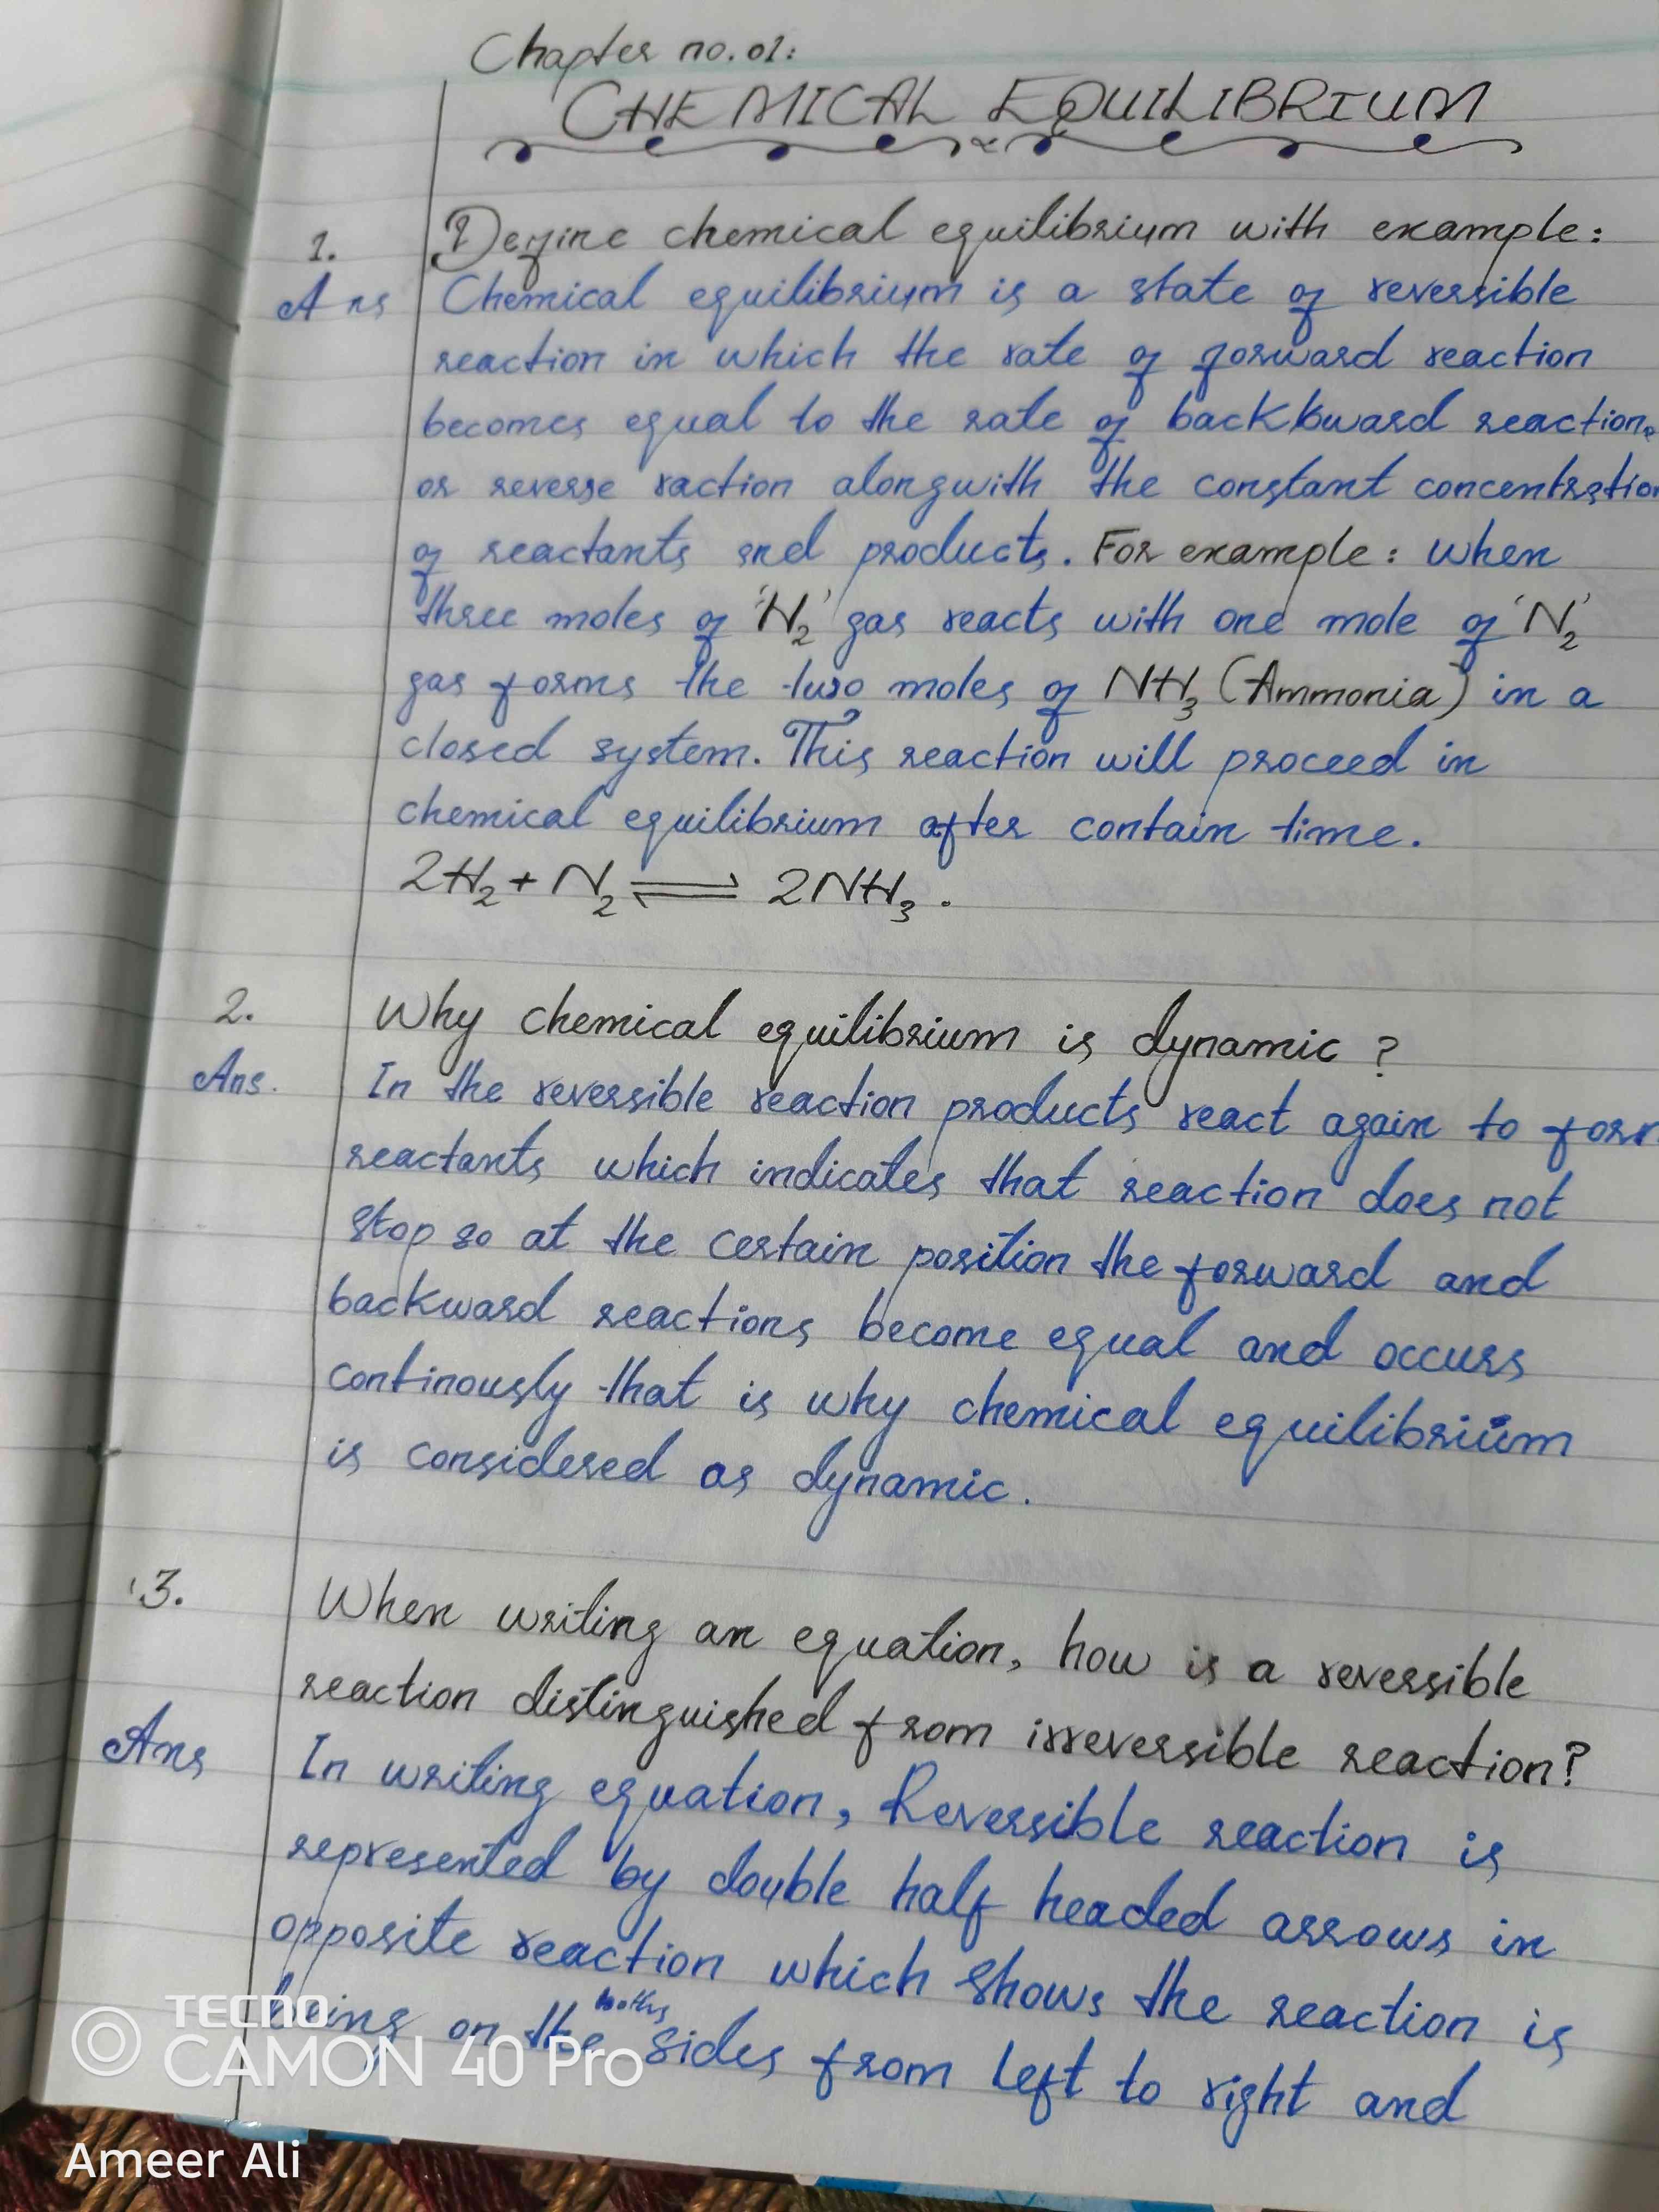 Chapter no.01:
CHEMICAL EQUILIBRIUM
1. Define chemical equilibrium with example:
Ans Chemical equilibrium is a state of reversible
reaction in which the rate of forward reaction
becomes equal to the rate of backbward reaction,
or reverse raction alongwith the constant concentration
of reactants and products. For example: when
three moles of 'H₂' gas reacts with one mole of 'N₂'
gas forms the two moles of NH₃ (Ammonia) in a
closed system. This reaction will proceed in
chemical equilibrium after contain time.
2H₂ + N₂ ⇌ 2NH₃.
2. Why chemical equilibrium is dynamic?
Ans. In the reversible reaction products react again to form
reactants which indicates that reaction does not
stop so at the certain position the forward and
backward reactions become equal and occurs
continously that is why chemical equilibrium
is considered as dynamic.
3. When writing an equation, how is a reversible
reaction distinguished from irreversible reaction?
Ans In writing equation, Reversible reaction is
represented by double half headed arrows in
opposite reaction which shows the reaction is
being on the boths sides from left to right and
TECNO
CAMON 40 Pro
Ameer Ali